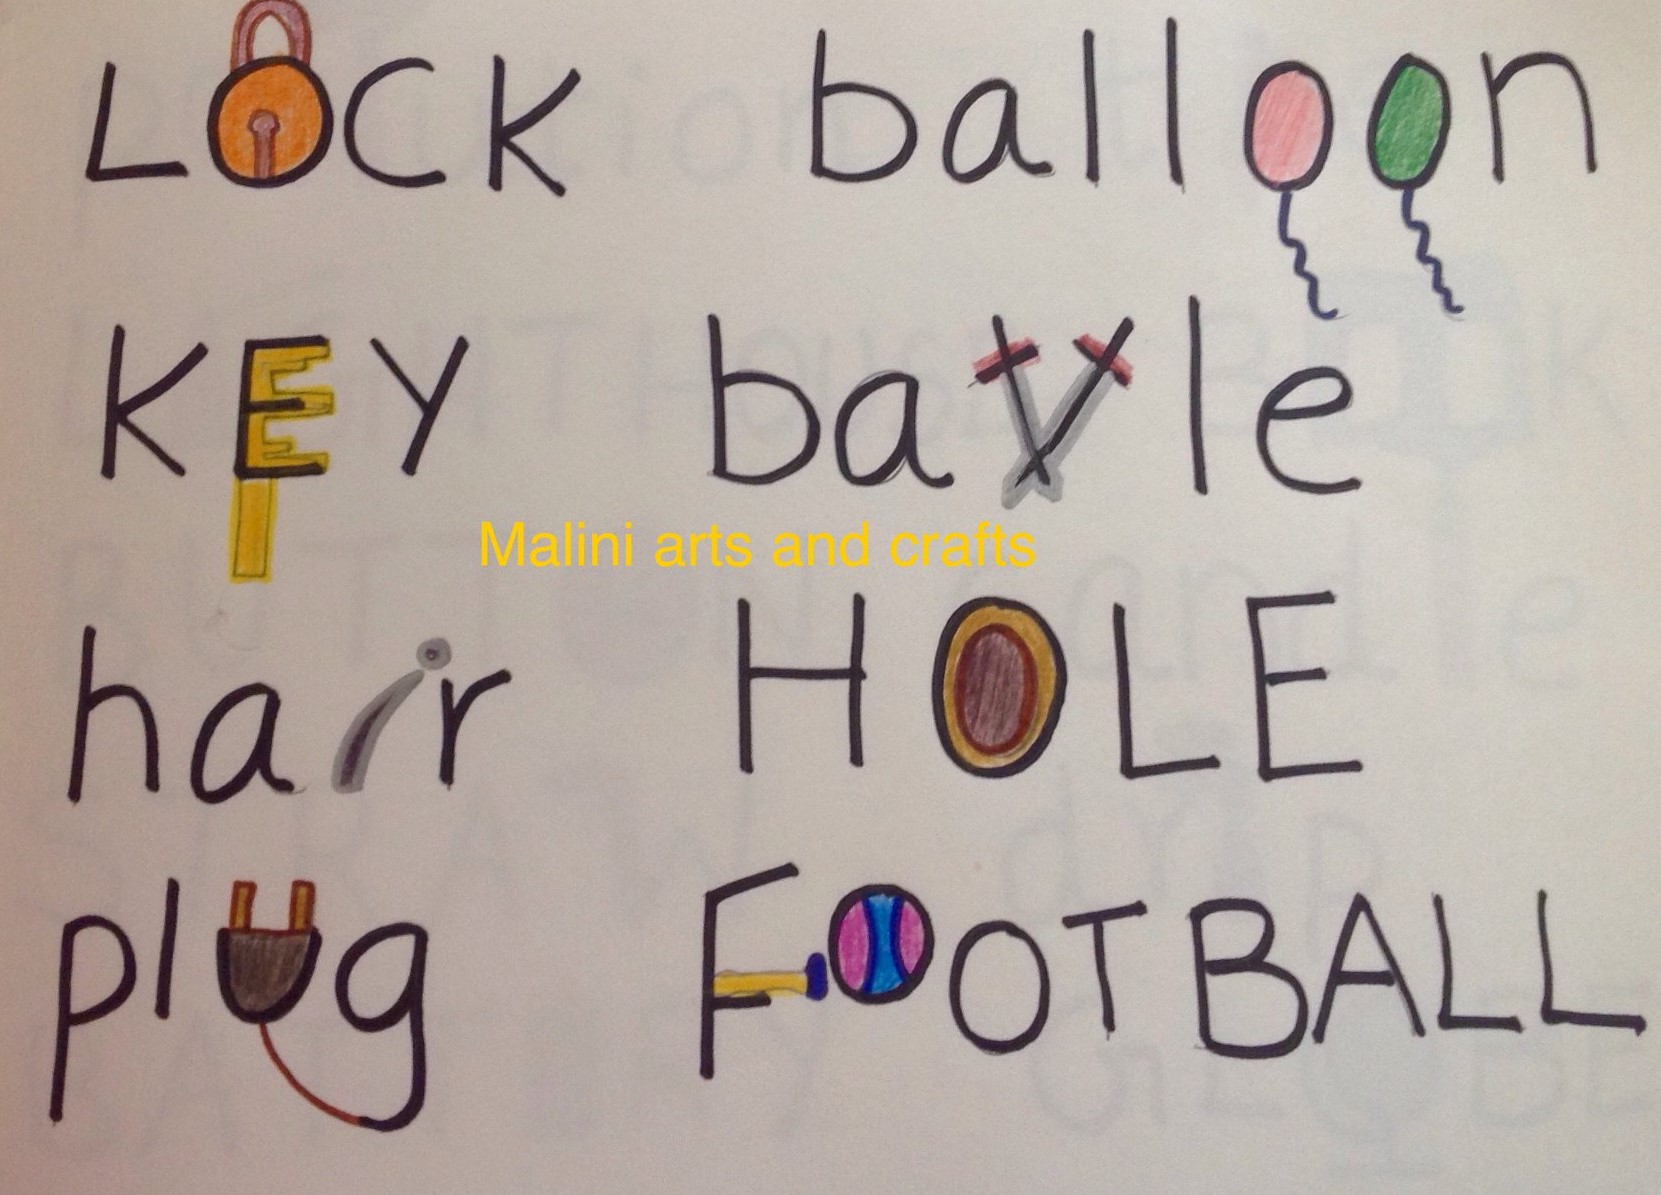 LOCK balloon
KEY battle
Malini arts and crafts
hair HOLE
plug FOOTBALL